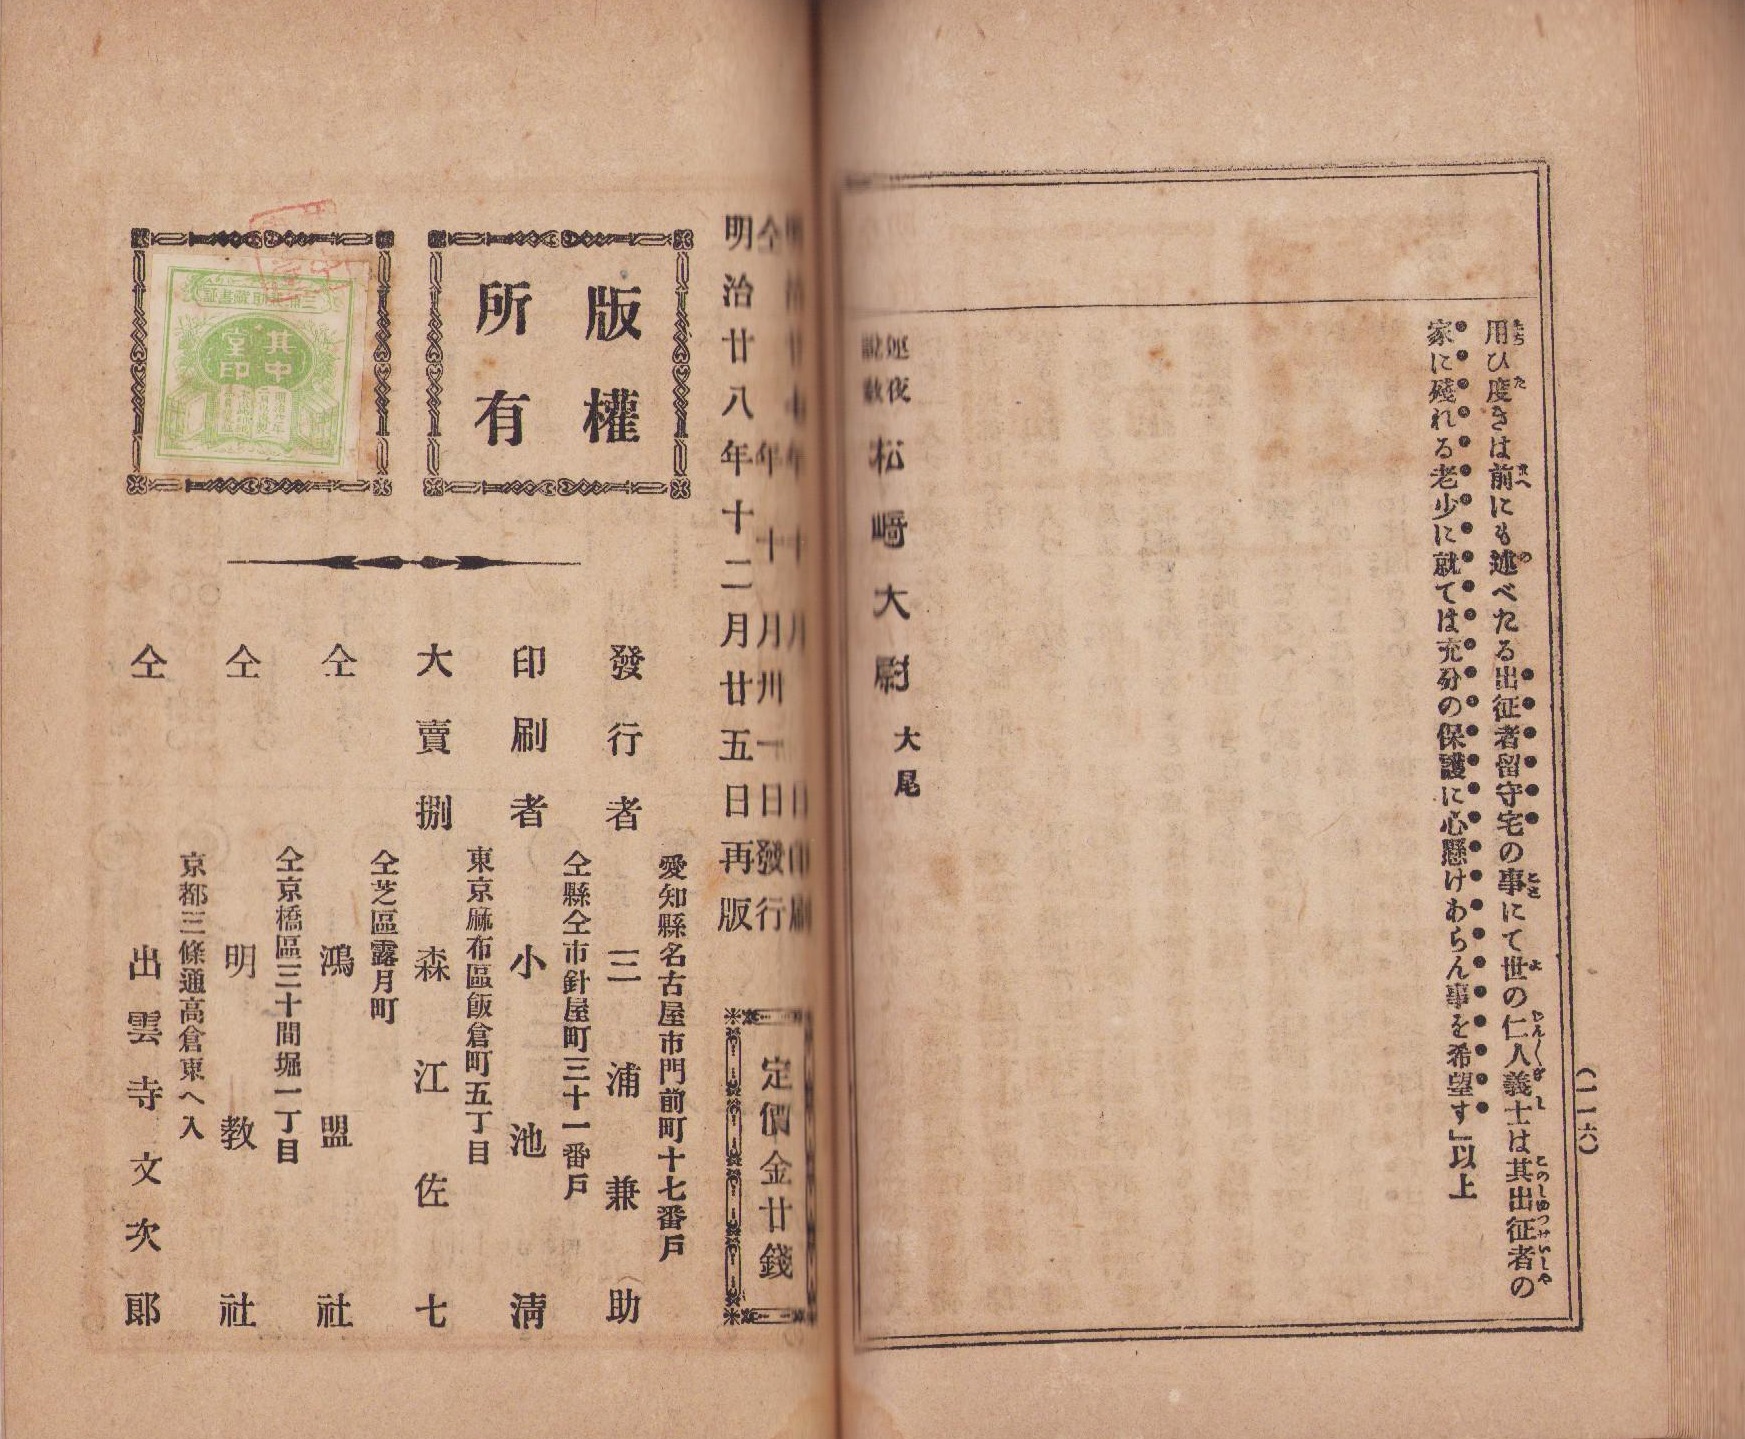 (一一六)
用ひ度きは前にも述べたる出征者留守宅の事にて世の仁人義士は其出征者の
家に殘れる老少に就ては充分の保護に心懸けあらん事を希望す」以上
逆夜說教 松崎大尉 大尾
明治廿七年十月 日印刷
仝年十月卅一日發行
明治廿八年十二月廿五日再版
定價金廿錢
版權
所有
其中
堂印
愛知縣名古屋市門前町十七番戶
發行者 三浦兼助
仝縣仝市針屋町三十一番戶
印刷者 小池淸
東京麻布區飯倉町五丁目
大賣捌 森江佐七
仝芝區露月町
仝 鴻盟社
仝京橋區三十間堀一丁目
仝 明教社
京都三條通高倉東へ入
仝 出雲寺文次郎